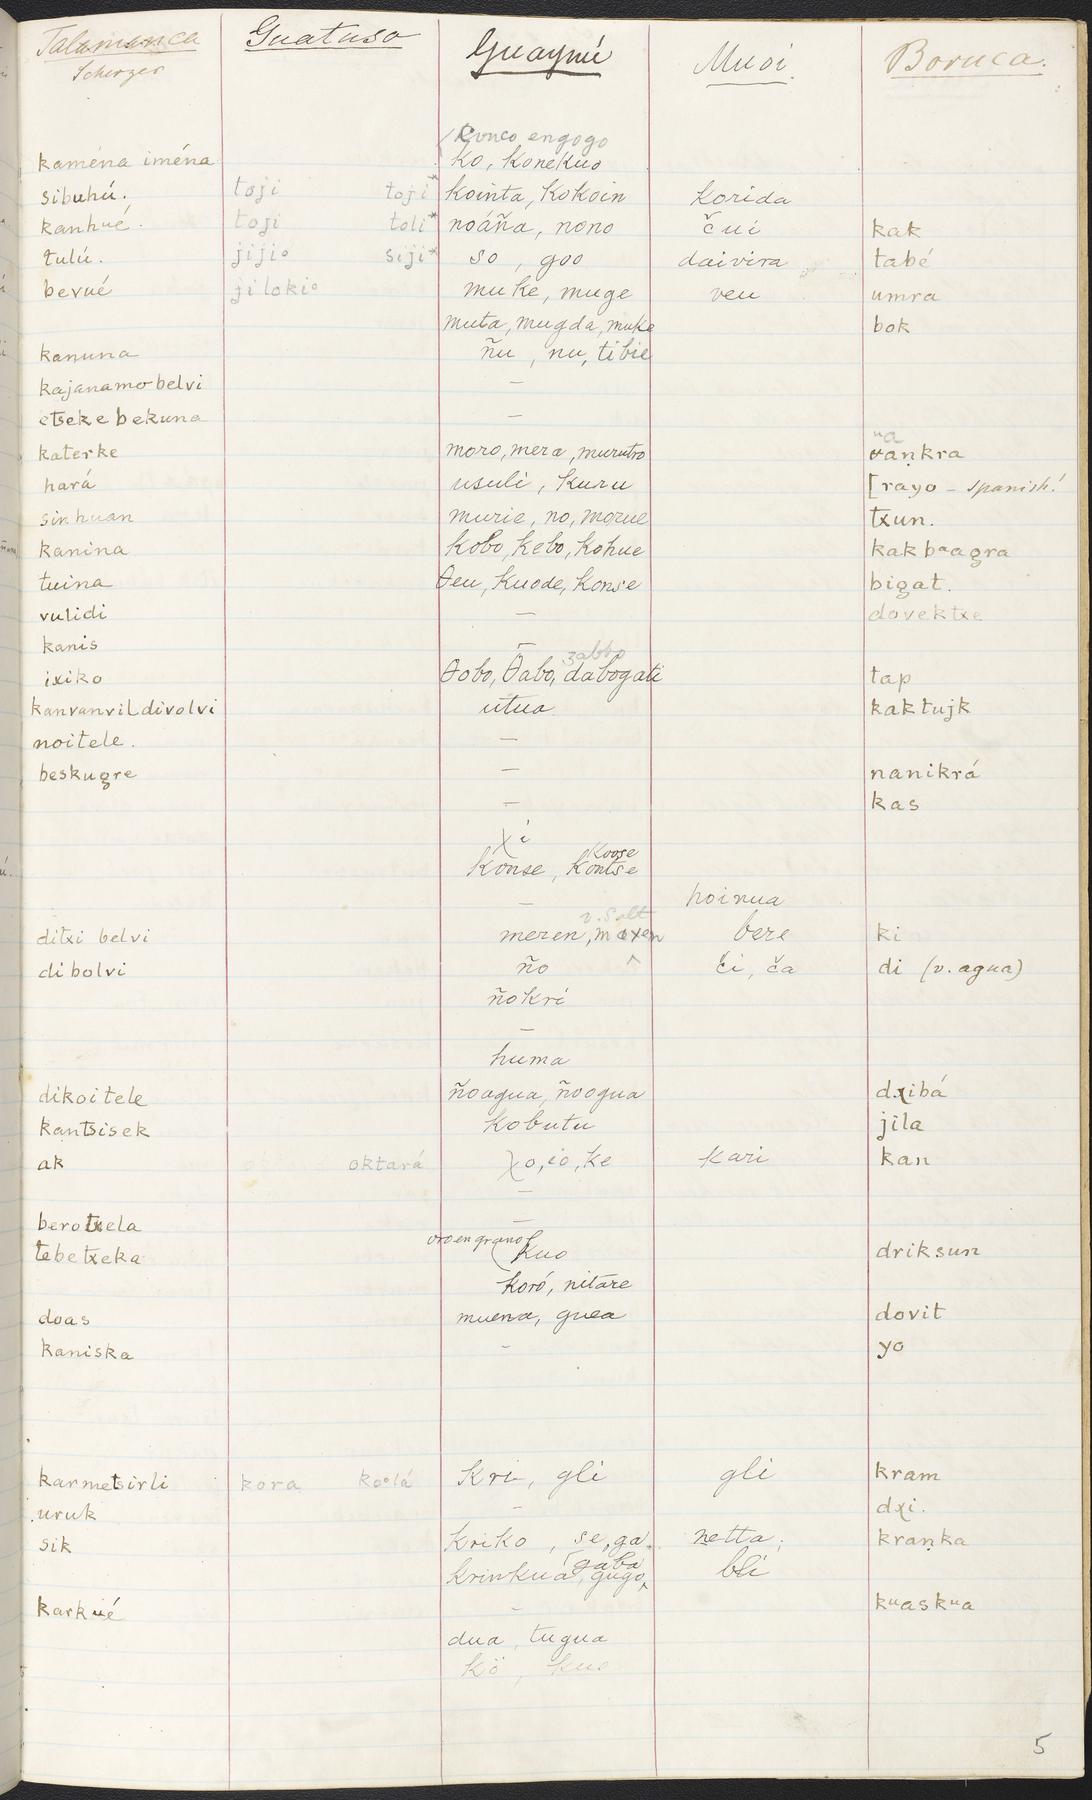 Talamanca Guatuso Guaymí Muoi Boruca.
Scherzer
Ronco engogo
kaména iména ko, konekuo
sibuhú. toji toji* kointa, kokoin korida
kanhué. toji toli* noáña, nono čui kak
tulú. jijio siji* so, goo daivira tabé
bevué jilokio muke, muge veu umra
muta, mugda, muke bok
kanuna ñu, nu, tibie
kajanamobelvi —
etsekebekuna —
ua
katerke moro, mera, murutro vaṇkra
hará usuli, kuru [rayo - spanish!
sinhuan murie, no, morue txun.
kanina kobo, kebo, kohue kakbaagra
tuina ϑeu, kuode, konse bigat.
vulidi — dovektxe
kanis —
zabbo
ixiko ϑobo, ϑabo, dabogati tap
kanvanvildivolvi utua kaktujk
noitele. —
beskugre — nanikrá
— kas
χi
koose
konse, kontse
— hoinua
v. Salt
ditxi belvi meren, moxen bere ki
dibolvi ño či, ča di (v. agua)
ñokri
—
huma
dikoitele ñoagua, ñoogua dχibá
kantsisek kobutu jila
ak oktará χo, io, ke kari kan
—
berotxela —
oro en grano
tebetxeka kuo driksun
koró, nitare
doas muena, guea dovit
kaniska - yo
karmetsirli kora koolá kri, gli gli kram
uruk - dχi.
sik kriko, se, ga. netta. kraṇka
gaba
krinkuá, gugo bli
karkué - kuaskua
dua, tugua
kö, kue
5